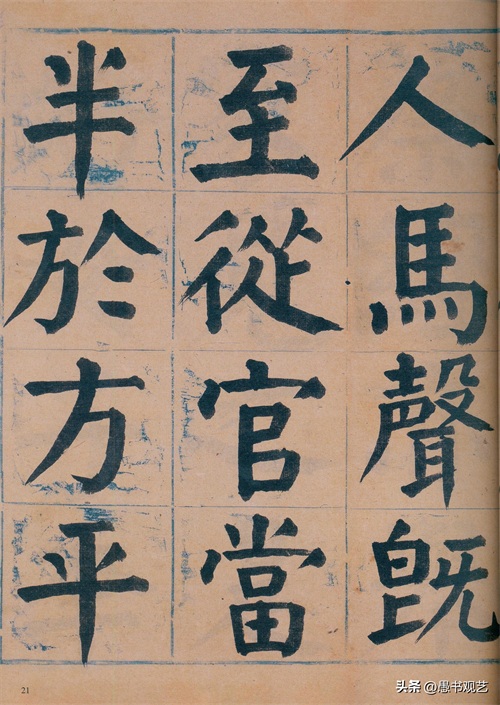 人馬聲既
至從官當
半於方平
21
头条 @愚书观艺